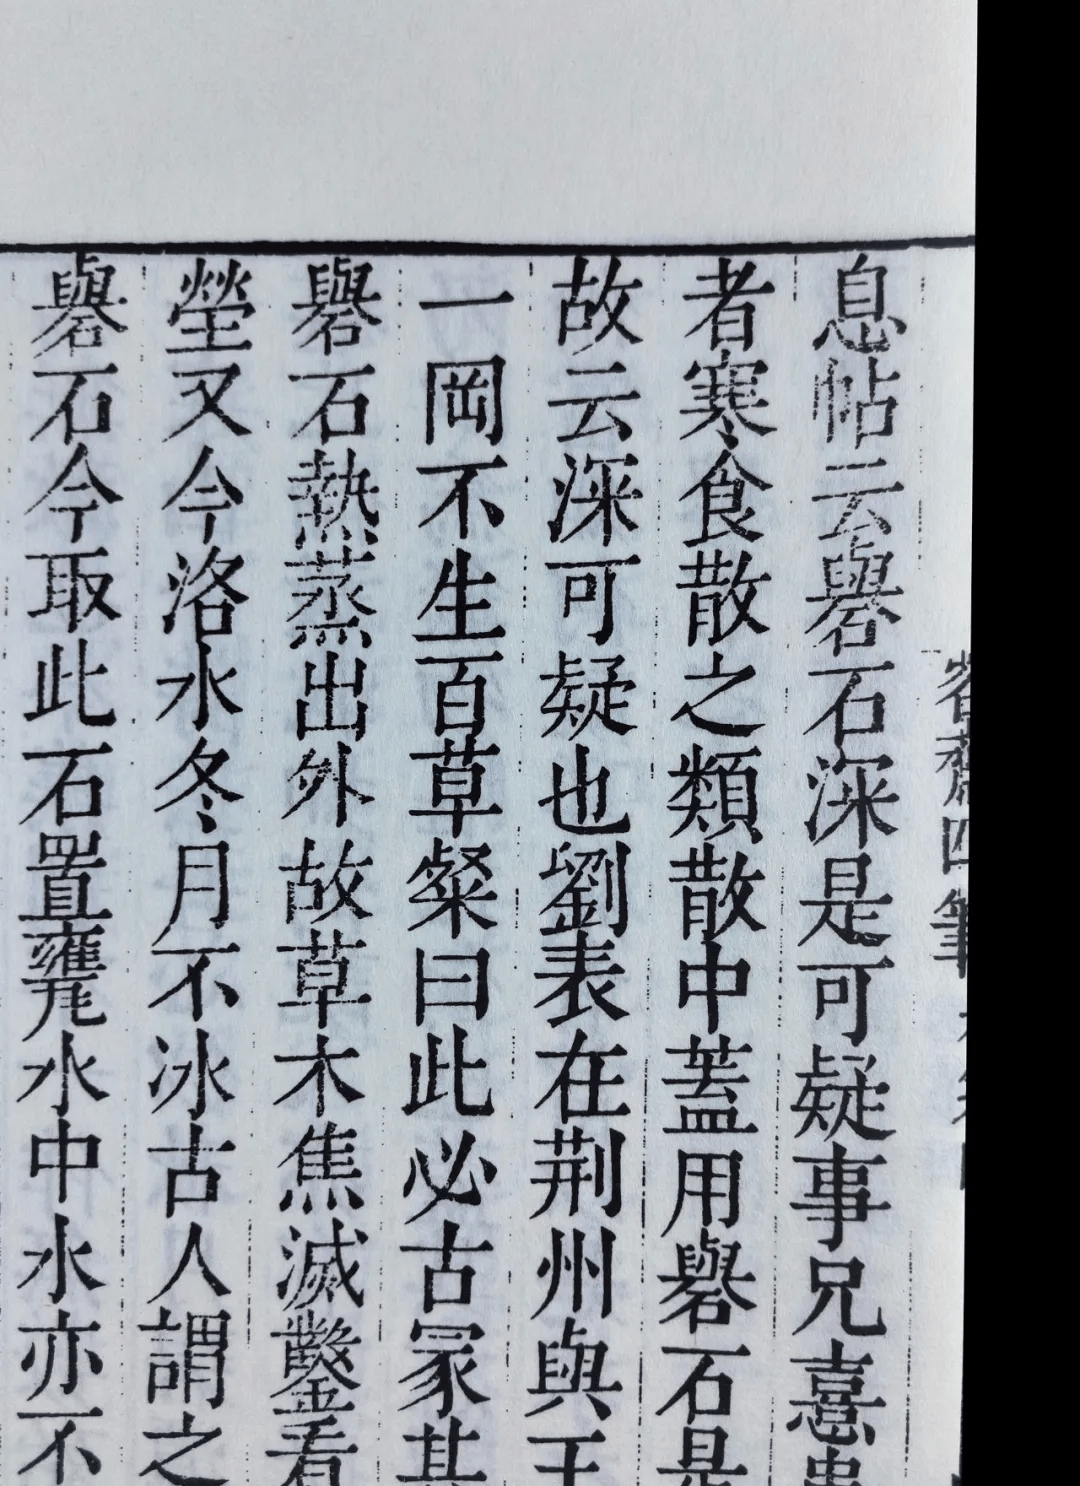 容齋四筆
息帖云礜石深是可疑事兄憙患
者寒食散之類散中蓋用礜石是
故云深可疑也劉表在荆州與王
一岡不生百草粲曰此必古冢其
礜石熱蒸出外故草木焦滅鑿看
塋又今洛水冬月不冰古人謂之
礜石今取此石置甕水中水亦不